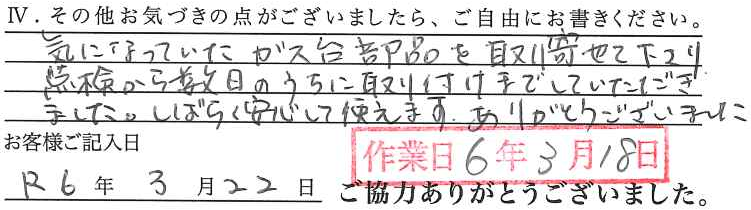 Ⅳ．その他お気づきの点がございましたら、ご自由にお書きください。
気になっていた ガス台部品を 取り寄せて下さり
点検から数日のうちに取り付けまでしていただき
ました。しばらく安心して使えます。ありがとうございました
お客様ご記入日
作業日 6年3月18日
R6年 3月22日 ご協力ありがとうございました。